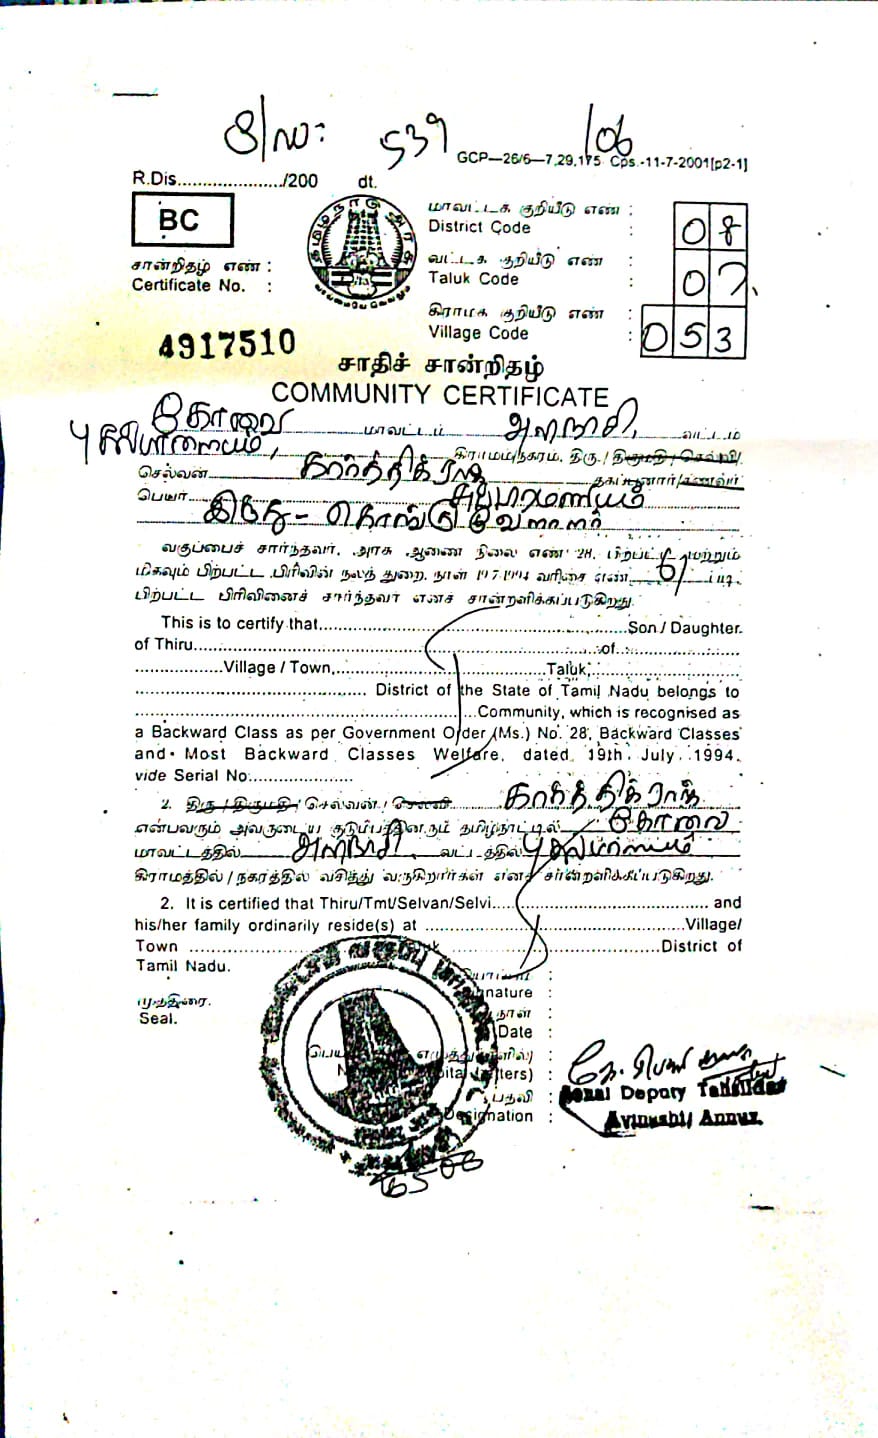 539 /06
GCP—26/6—7,29,175 Cps.-11-7-2001[p2-1]
R.Dis...................../200 dt.
BC
மாவட்டக் குறியீடு எண் :
District Code : 08
சான்றிதழ் எண் :
Certificate No. :
வட்டக் குறியீடு எண் :
Taluk Code : 07
கிராமக் குறியீடு எண் :
Village Code : 053
4917510
சாதிச் சான்றிதழ்
COMMUNITY CERTIFICATE
கோவை மாவட்டம் அவிநாசி, வட்டம்
கிராமம்/நகரம், திரு./திருமதி/செல்வி/
செல்வன் தகப்பனார்/கணவர்
பெயர் சுப்பரமணியம்
இந்து - கொங்கு வேளாளர்
வகுப்பைச் சார்ந்தவர். அரசு ஆணை நிலை எண் 28, பிற்பட்ட மற்றும்
மிகவும் பிற்பட்ட பிரிவின் நலத் துறை, நாள் 19.7.1994 வரிசை எண் 61 படி
பிற்பட்ட பிரிவினைச் சார்ந்தவர் எனச் சான்றளிக்கப்படுகிறது.
This is to certify that..................Son / Daughter.
of Thiru..................of..................
..................Village / Town,..................Taluk,..................
.................. District of the State of Tamil Nadu belongs to
..................Community, which is recognised as
a Backward Class as per Government Order (Ms.) No. 28, Backward Classes
and Most Backward Classes Welfare, dated 19th July 1994.
vide Serial No...................
2. திரு / திருமதி / செல்வன் / செல்வி
என்பவரும் அவருடைய குடும்பத்தினரும் தமிழ்நாட்டில் கோவை
மாவட்டத்தில் அவிநாசி வட்டத்தில்
கிராமத்தில் / நகரத்தில் வசித்து வருகிறார்கள் எனச் சான்றளிக்கப்படுகிறது.
2. It is certified that Thiru/Tmt/Selvan/Selvi.................. and
his/her family ordinarily reside(s) at ..................Village/
Town ..................District of
Tamil Nadu.
முத்திரை.
Seal.
நாள் :
Date :
பதவி :
Zonal Deputy Tahsildar
Avinashi/ Annur.